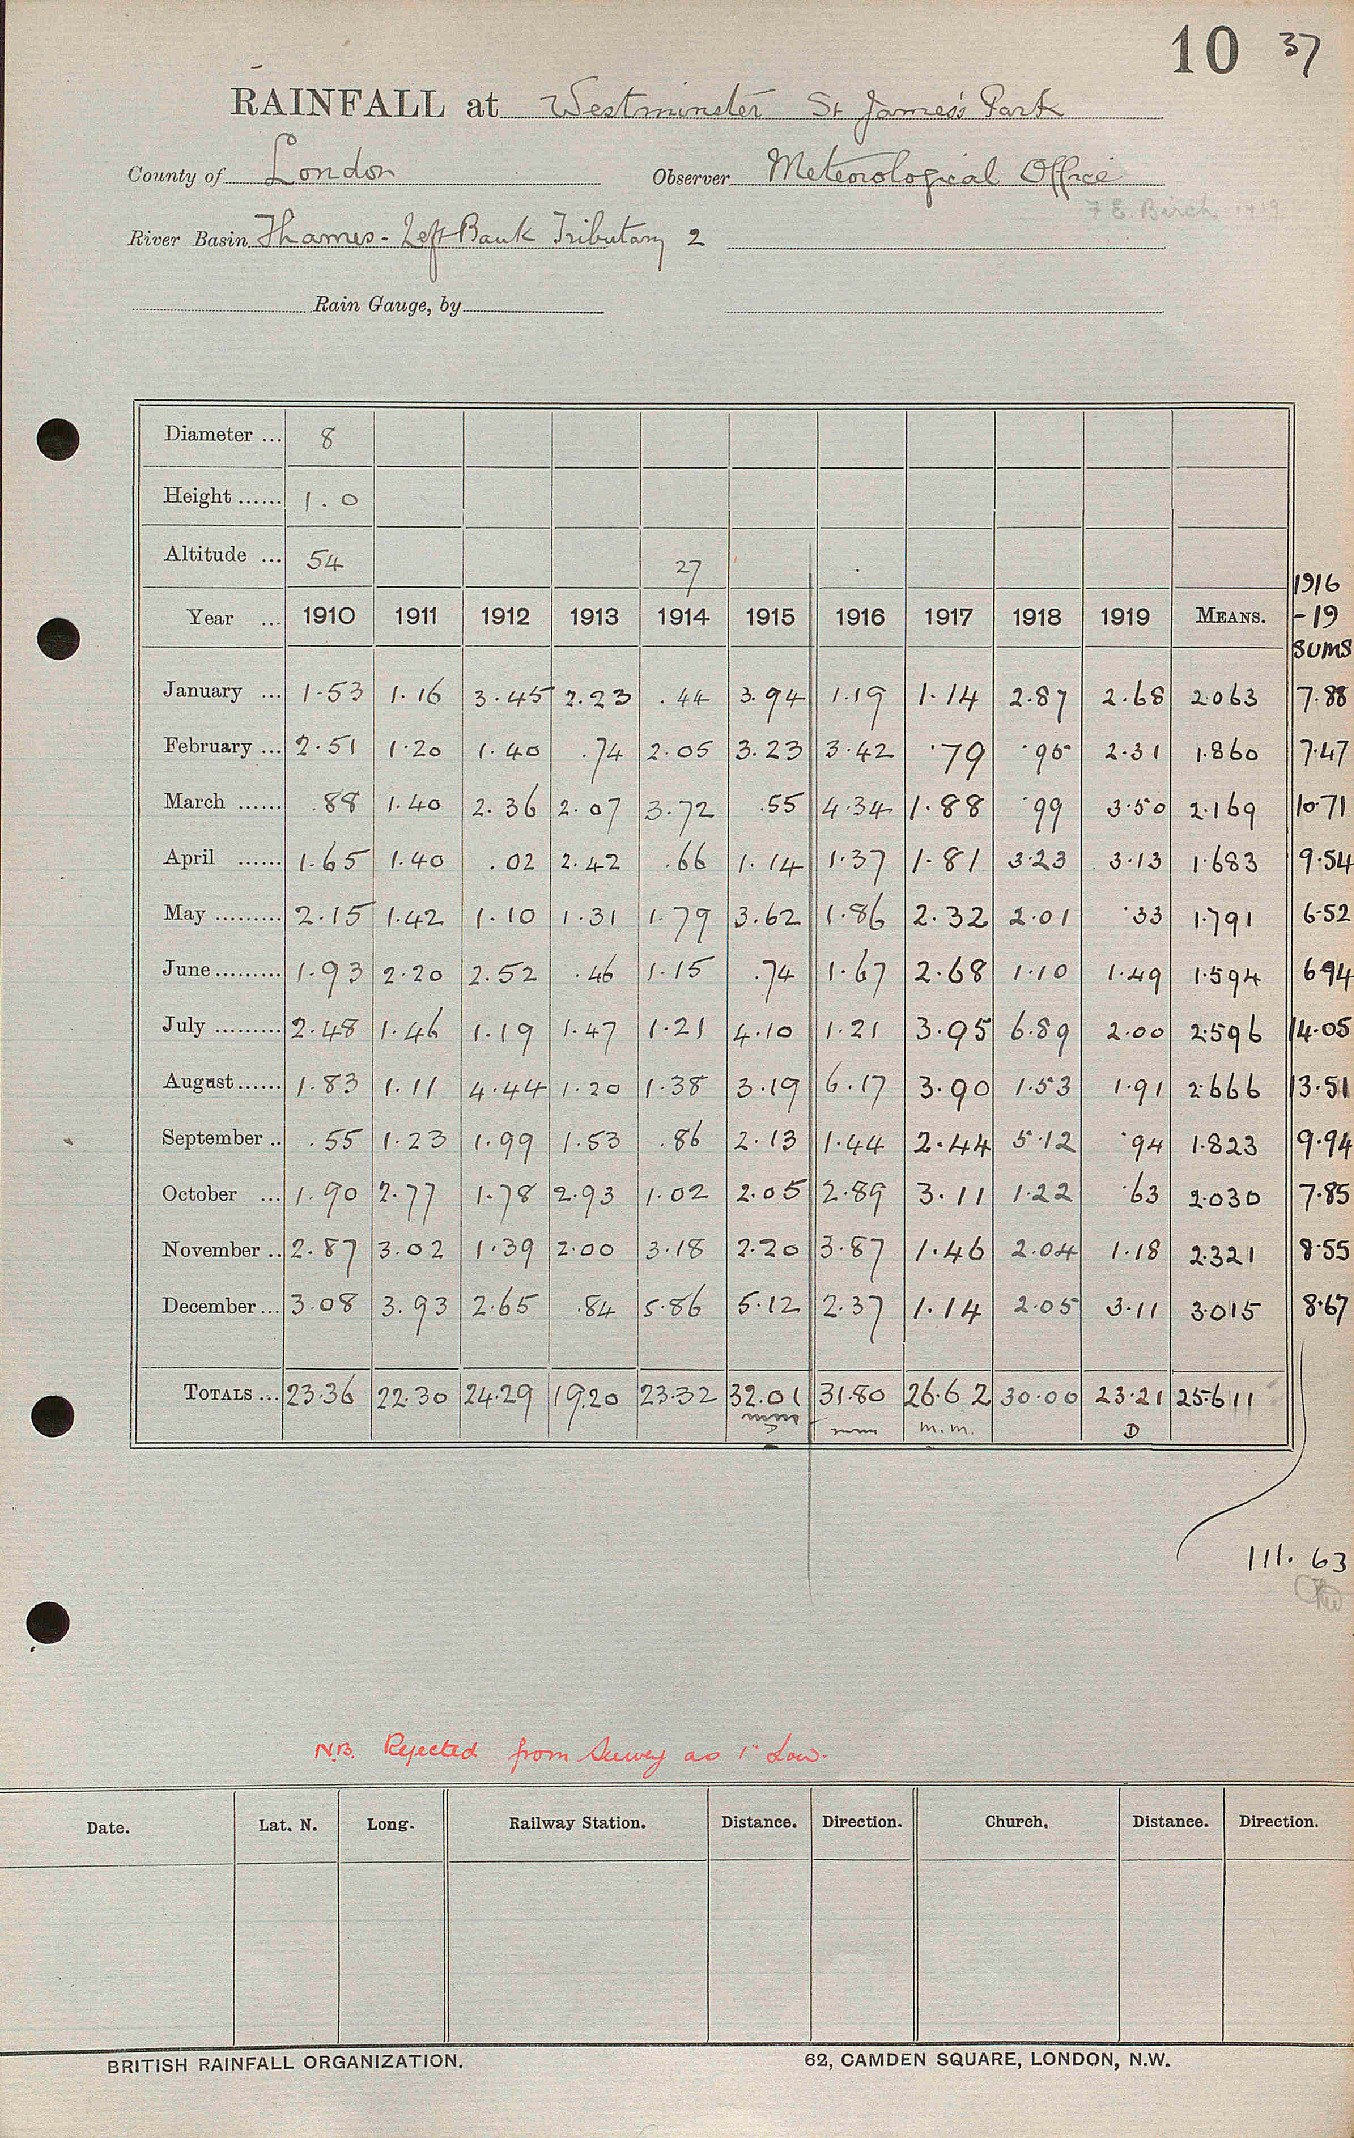 10 37
RAINFALL at Westminster St James's Park
County of London Observer Meteorological Office
F E. Birch. 1919
River Basin Thames - Left Bank Tributary 2
Rain Gauge, by
Diameter ... 8
Height ...... 1.0
Altitude ... 54 27
1916
Year ... 1910 1911 1912 1913 1914 1915 1916 1917 1918 1919 MEANS. -19
SUMS
January ... 1.53 1.16 3.45 2.23 .44 3.94 1.19 1.14 2.87 2.68 2.063 7.88
February ... 2.51 1.20 1.40 .74 2.05 3.23 3.42 .79 .95 2.31 1.860 7.47
March ...... .88 1.40 2.36 2.07 3.72 .55 4.34 1.88 .99 3.50 2.169 10.71
April ...... 1.65 1.40 .02 2.42 .66 1.14 1.37 1.81 3.23 3.13 1.683 9.54
May ......... 2.15 1.42 1.10 1.31 1.79 3.62 1.86 2.32 2.01 .33 1.791 6.52
June ......... 1.93 2.20 2.52 .46 1.15 .74 1.67 2.68 1.10 1.49 1.594 6.94
July ......... 2.48 1.46 1.19 1.47 1.21 4.10 1.21 3.95 6.89 2.00 2.596 14.05
August ...... 1.83 1.11 4.44 1.20 1.38 3.19 6.17 3.90 1.53 1.91 2.666 13.51
September .. .55 1.23 1.99 1.53 .86 2.13 1.44 2.44 5.12 .94 1.823 9.94
October ... 1.90 2.77 1.78 2.93 1.02 2.05 2.89 3.11 1.22 .63 2.030 7.85
November .. 2.87 3.02 1.39 2.00 3.18 2.20 3.87 1.46 2.04 1.18 2.321 8.55
December ... 3.08 3.93 2.65 .84 5.86 5.12 2.37 1.14 2.05 3.11 3.015 8.67
TOTALS ... 23.36 22.30 24.29 19.20 23.32 32.01 31.80 26.62 30.00 23.21 25.611
mm mm m.m. D
111.63
N.B. Rejected from Survey as 1" Low.
Date. Lat. N. Long. Railway Station. Distance. Direction. Church. Distance. Direction.
BRITISH RAINFALL ORGANIZATION. 62, CAMDEN SQUARE, LONDON, N.W.